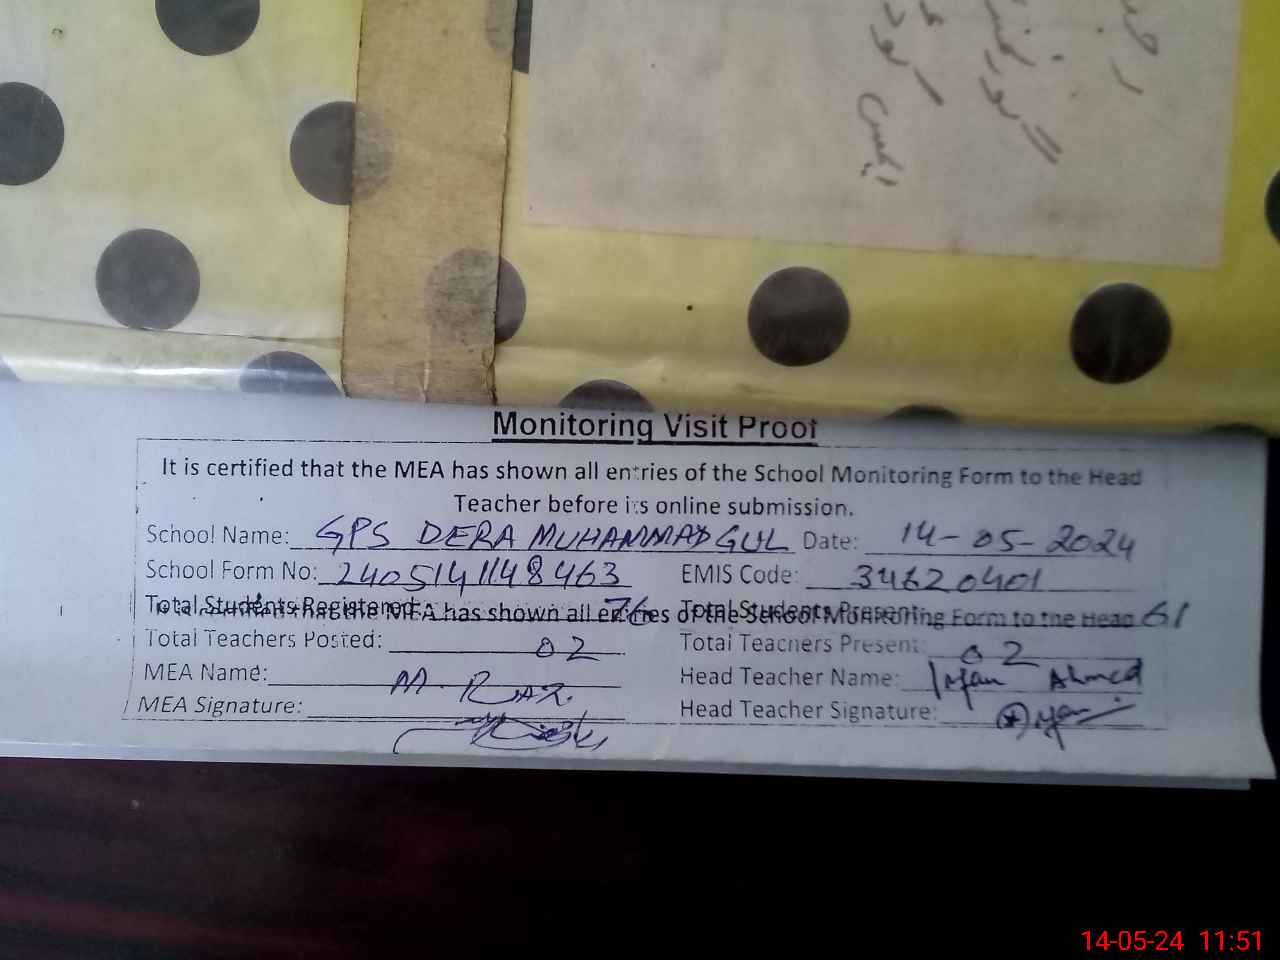 Monitoring Visit Proof
It is certified that the MEA has shown all entries of the School Monitoring Form to the Head
Teacher before its online submission.
School Name: GPS DERA MUHAMMAD GUL Date: 14-05-2024
School Form No: 2405141148463 EMIS Code: 34620401
Total Students Registered: 76 Total Students Present: 61
MEA has shown all entries of the School Monitoring Form to the Head
Total Teachers Posted: 02 Total Teachers Present: 02
MEA Name: M. Riaz Head Teacher Name: Irfan Ahmed
MEA Signature: Head Teacher Signature:
14-05-24 11:51